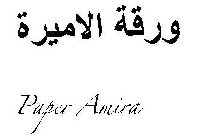 ورقة الاميرة
Paper Amira